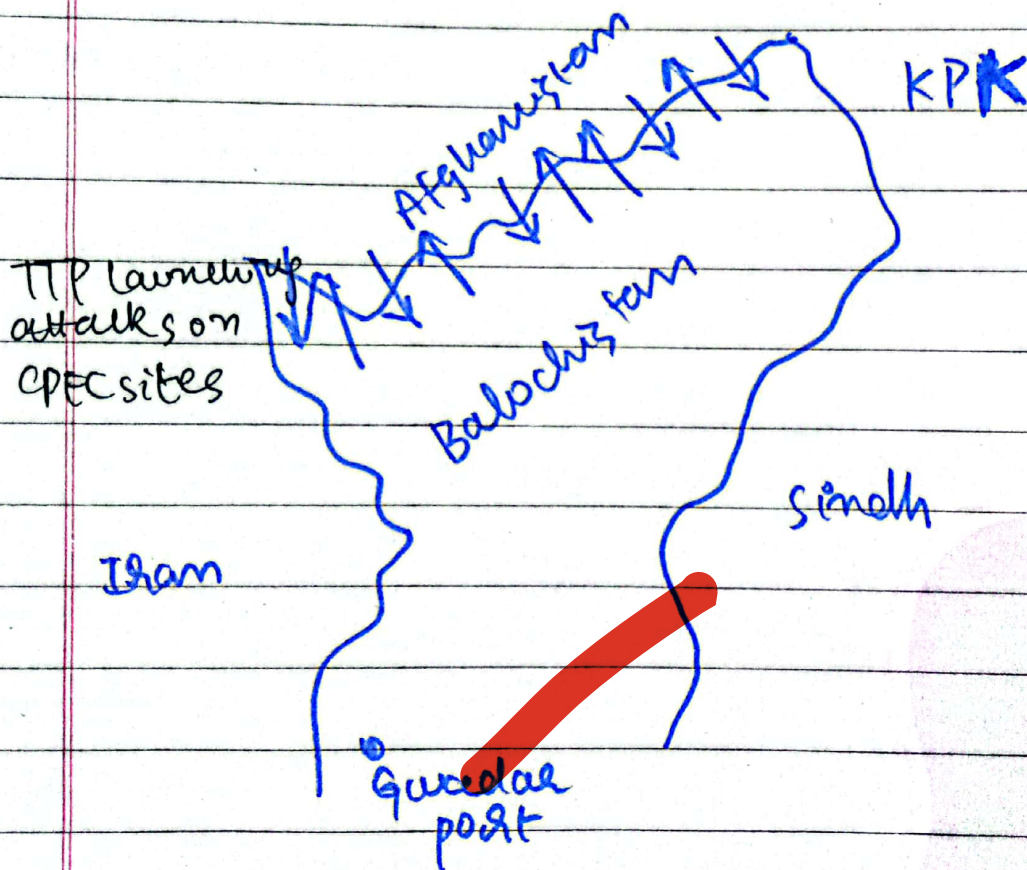 Afghanistan
KPK
TTP launching
attacks on
CPEC sites
Balochistan
Sindh
Iran
Gwadar
port